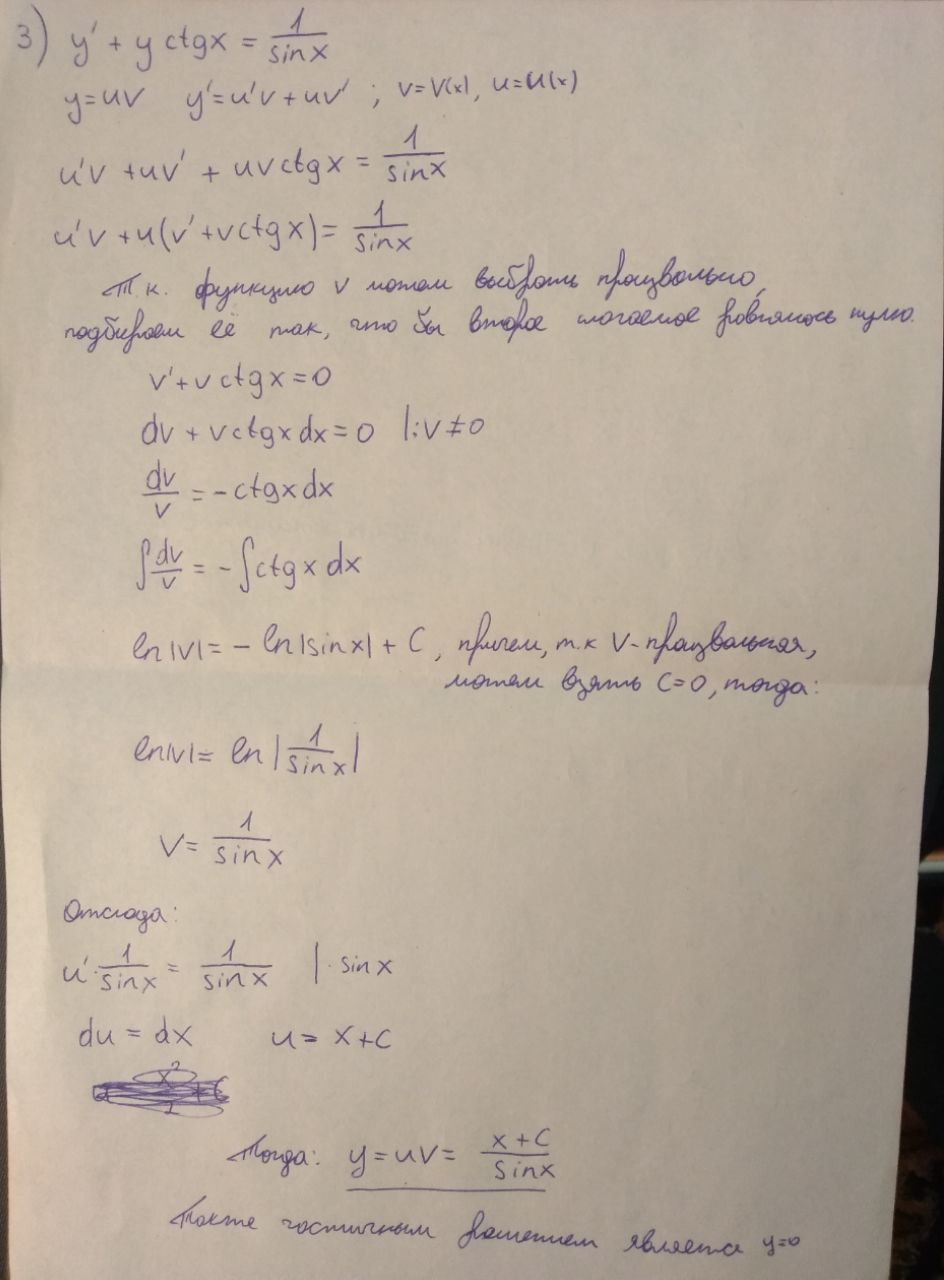 3) y' + y ctgx = 1/sinx
y=uv y'=u'v+uv' ; v=v(x), u=u(x)
u'v +uv' + uvctgx = 1/sinx
u'v +u(v'+vctgx)= 1/sinx
Т.к. функцию v можем выбрать произвольно,
подбираем её так, что бы второе слогаемое ровнялось нулю.
v'+vctgx=0
dv + vctgxdx=0 |:v≠0
dv/v = -ctgxdx
∫dv/v = -∫ctgx dx
ln|v|= - ln|sinx| + C, причем, т.к v-произвольная,
можем взять C=0, тогда:
ln|v|= ln|1/sinx|
v= 1/sinx
Отсюда:
u'·1/sinx = 1/sinx |·sinx
du = dx u= x+C
Тогда: y=uv= x+C/sinx
Также частичным решением является y=0